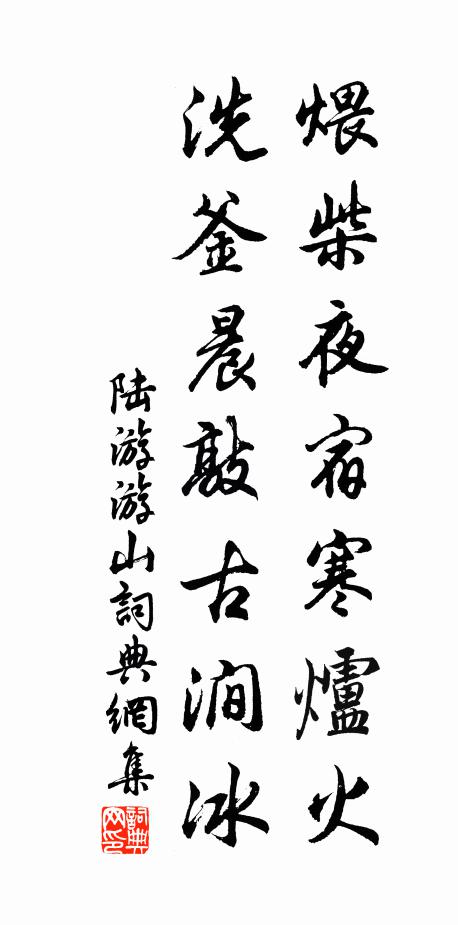 煨柴夜宿寒爐火
洗釜晨敲古澗冰
陆游游山詞典網集
詞典网印